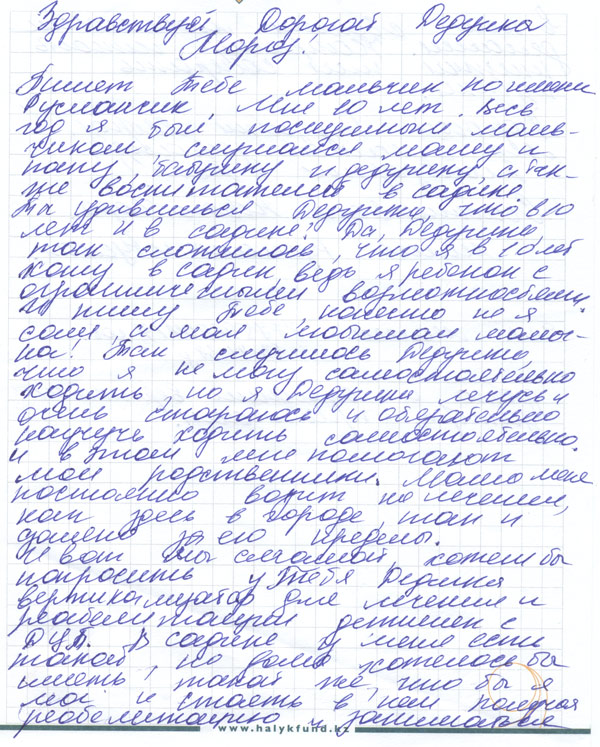 Здравствуй Дорогой Дедушка
Мороз!
Пишет Тебе мальчик по имени
Русланчик, Мне 10 лет. Весь
год я был послушным маль-
чиком, слушался маму и
папу, бабушку и дедушку, а так-
же воспитателей в садике.
Ты удивишься Дедушка, что в 10
лет и в садике! Да, Дедушка,
так сложилось, что я в 10 лет
хожу в садик ведь я ребенок с
ограниченными возможностями.
И пишу Тебе, конечно не я
сам, а моя любимая мамоч-
ка! Так случилось Дедушка,
что я не могу самостоятельно
ходить, но я Дедушка лечусь и
очень стараюсь и обязательно
научусь ходить самостоятельно.
и в этом мне помогают
мои родственники. Мама меня
постоянно возит на лечения,
как здесь в городе, так и
далеко за его пределы.
И вот Мы с мамой хотели бы
попросить у Тебя Дедушка
вертикализатор для лечения и
реабелитации детишек с
ДЦП. В садике у меня есть
такой, но дома хотелось бы
иметь такой же, что бы я
мог и стоять в нем получая
реабелитацию и заниматься
www.halykfund.kz